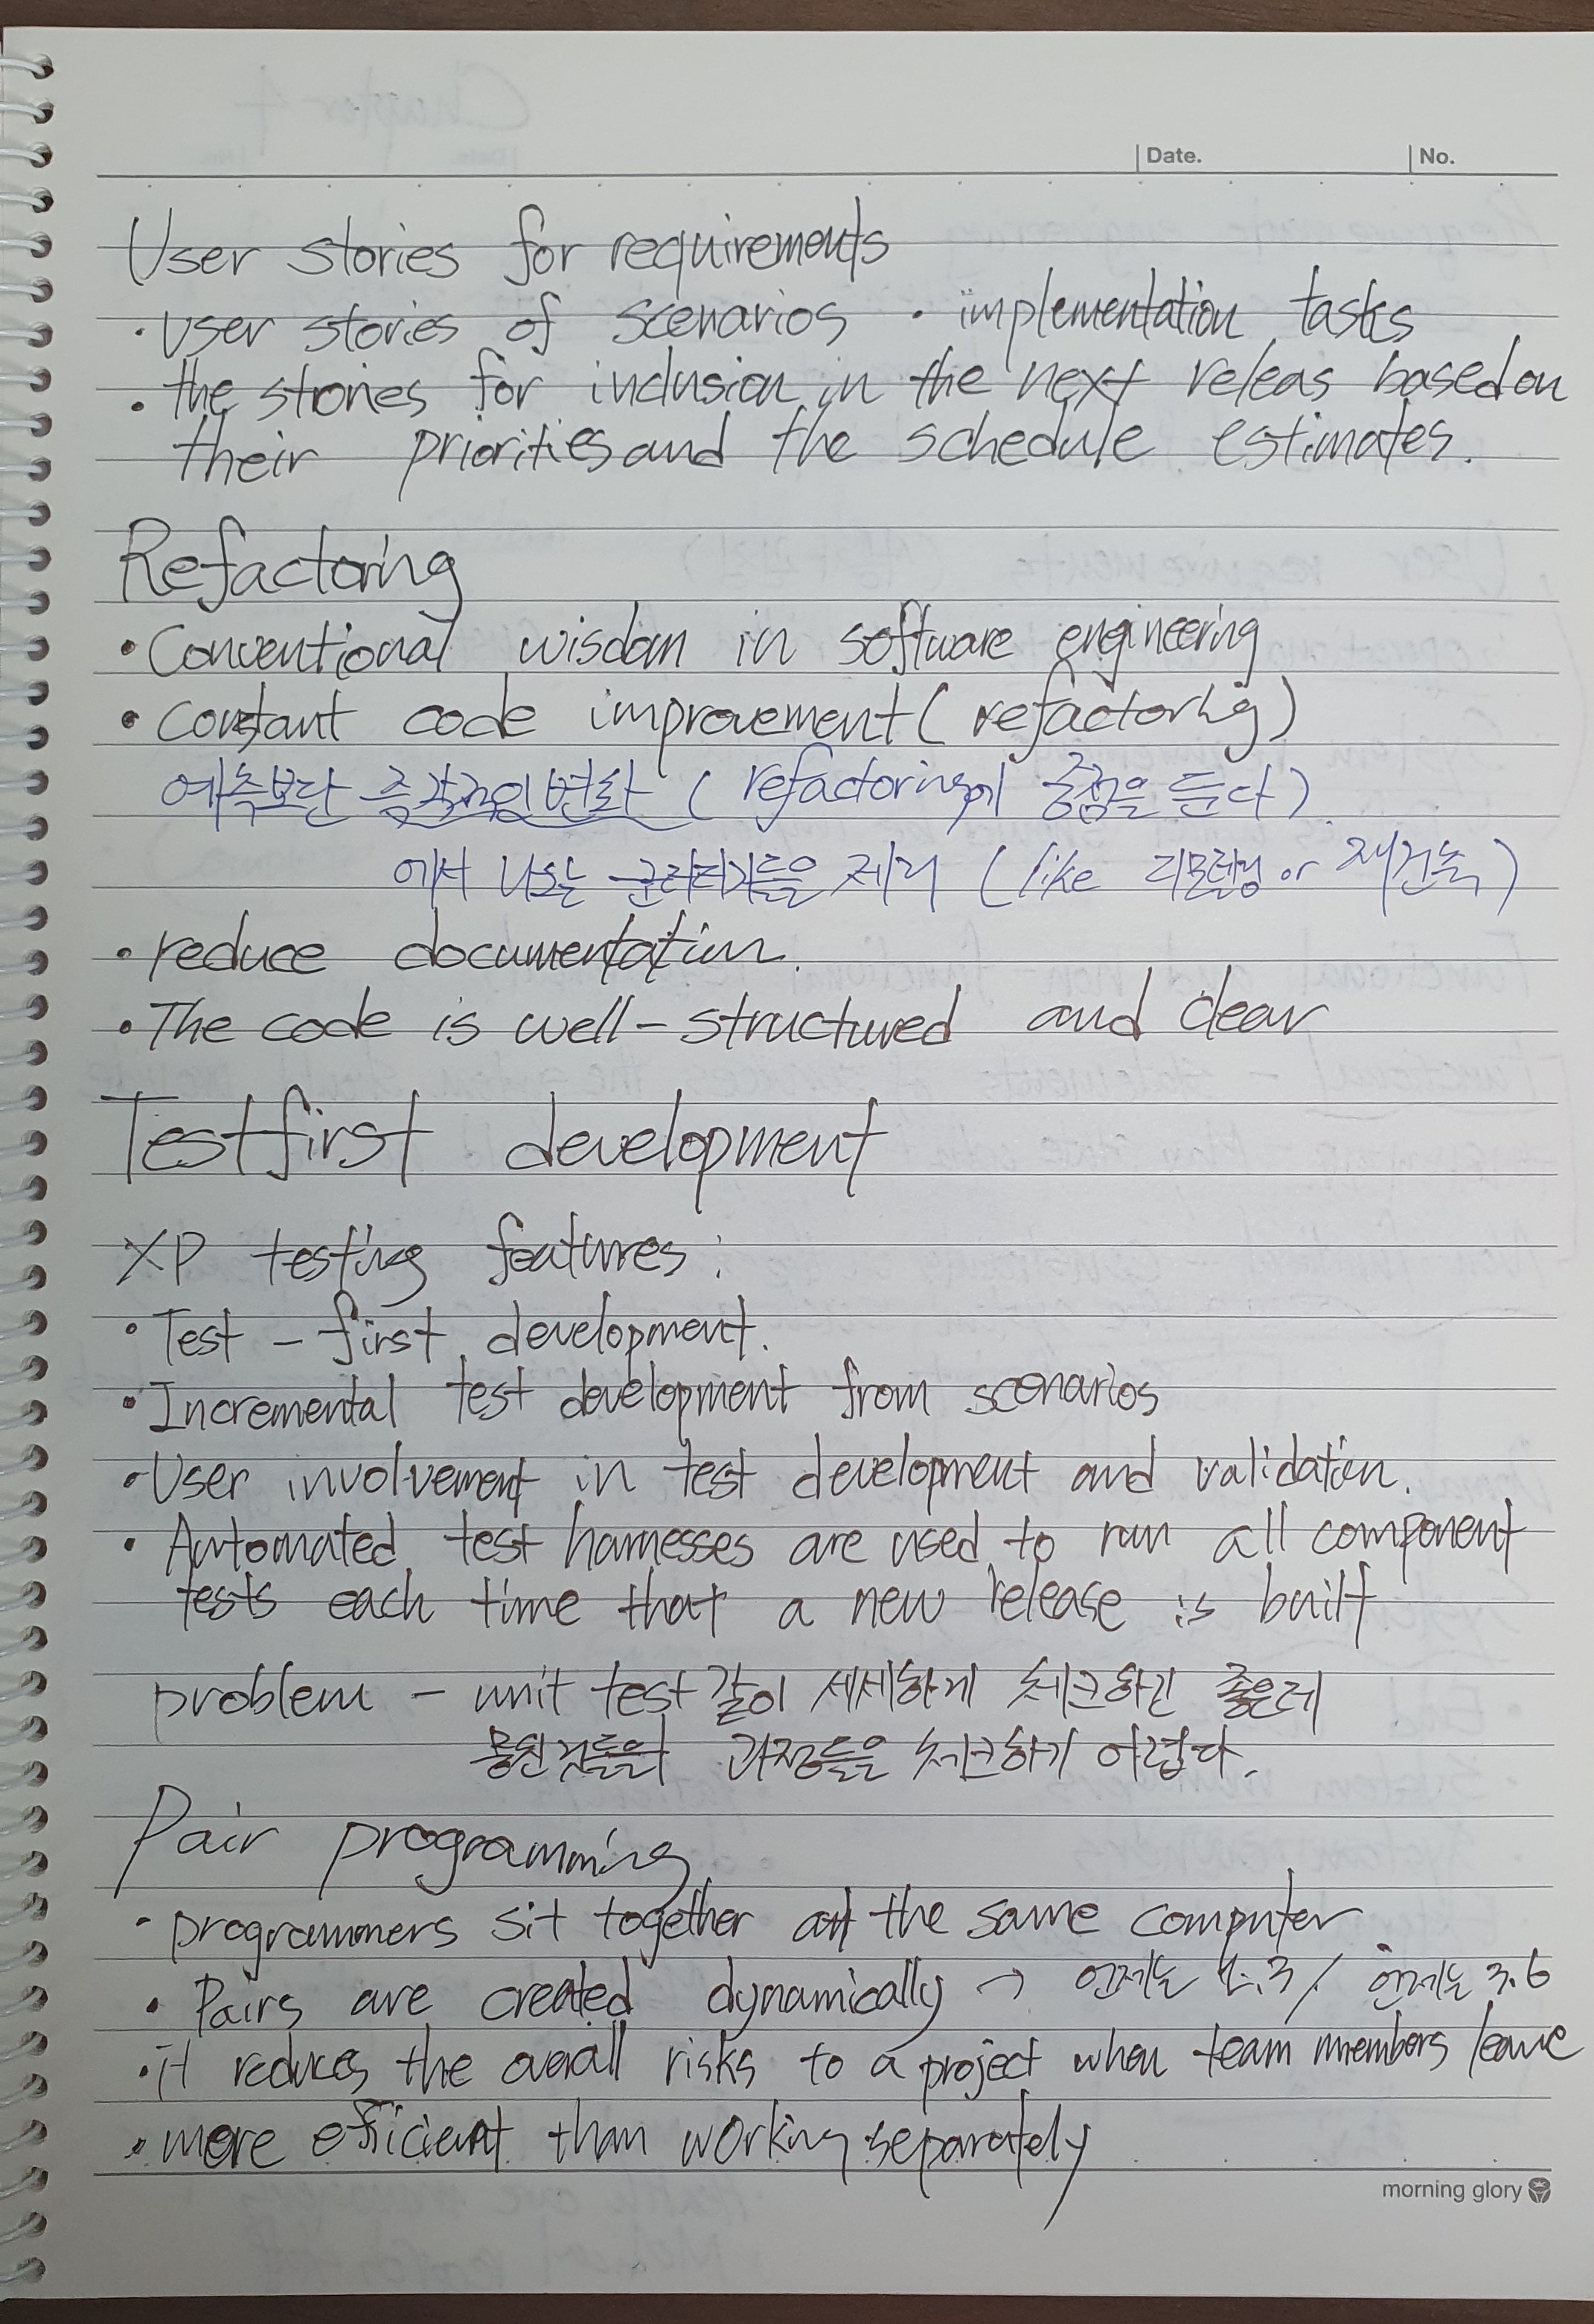 Date. No.
User stories for requirements
· user stories of scenarios · implementation tasks
· the stories for inclusion in the next releas based on
their priorities and the schedule estimates.
Refactoring
· Conventional wisdom in software engineering
· constant code improvement (refactoring)
예측보단 즉각적인 변화 (refactoring에 중점을 둔다)
에서 나오는 제거 (like 리모델링 or 재건축)
· reduce documentation.
· The code is well-structured and clear
Testfirst development
XP testing features:
· Test - first development.
· Incremental test development from scenarios
· User involvement in test development and validation.
· Automated test harnesses are used to run all component
tests each time that a new release is built
problem - unit test 같이 세세하게 체크하긴 좋은데
과정들을 체크하기 어렵다.
Pair programming
· programmers sit together at the same computer
· Pairs are created dynamically → 언제는 / 언제는 3.6
· it reduces the overall risks to a project when team members leave
· more efficient than working separately
morning glory